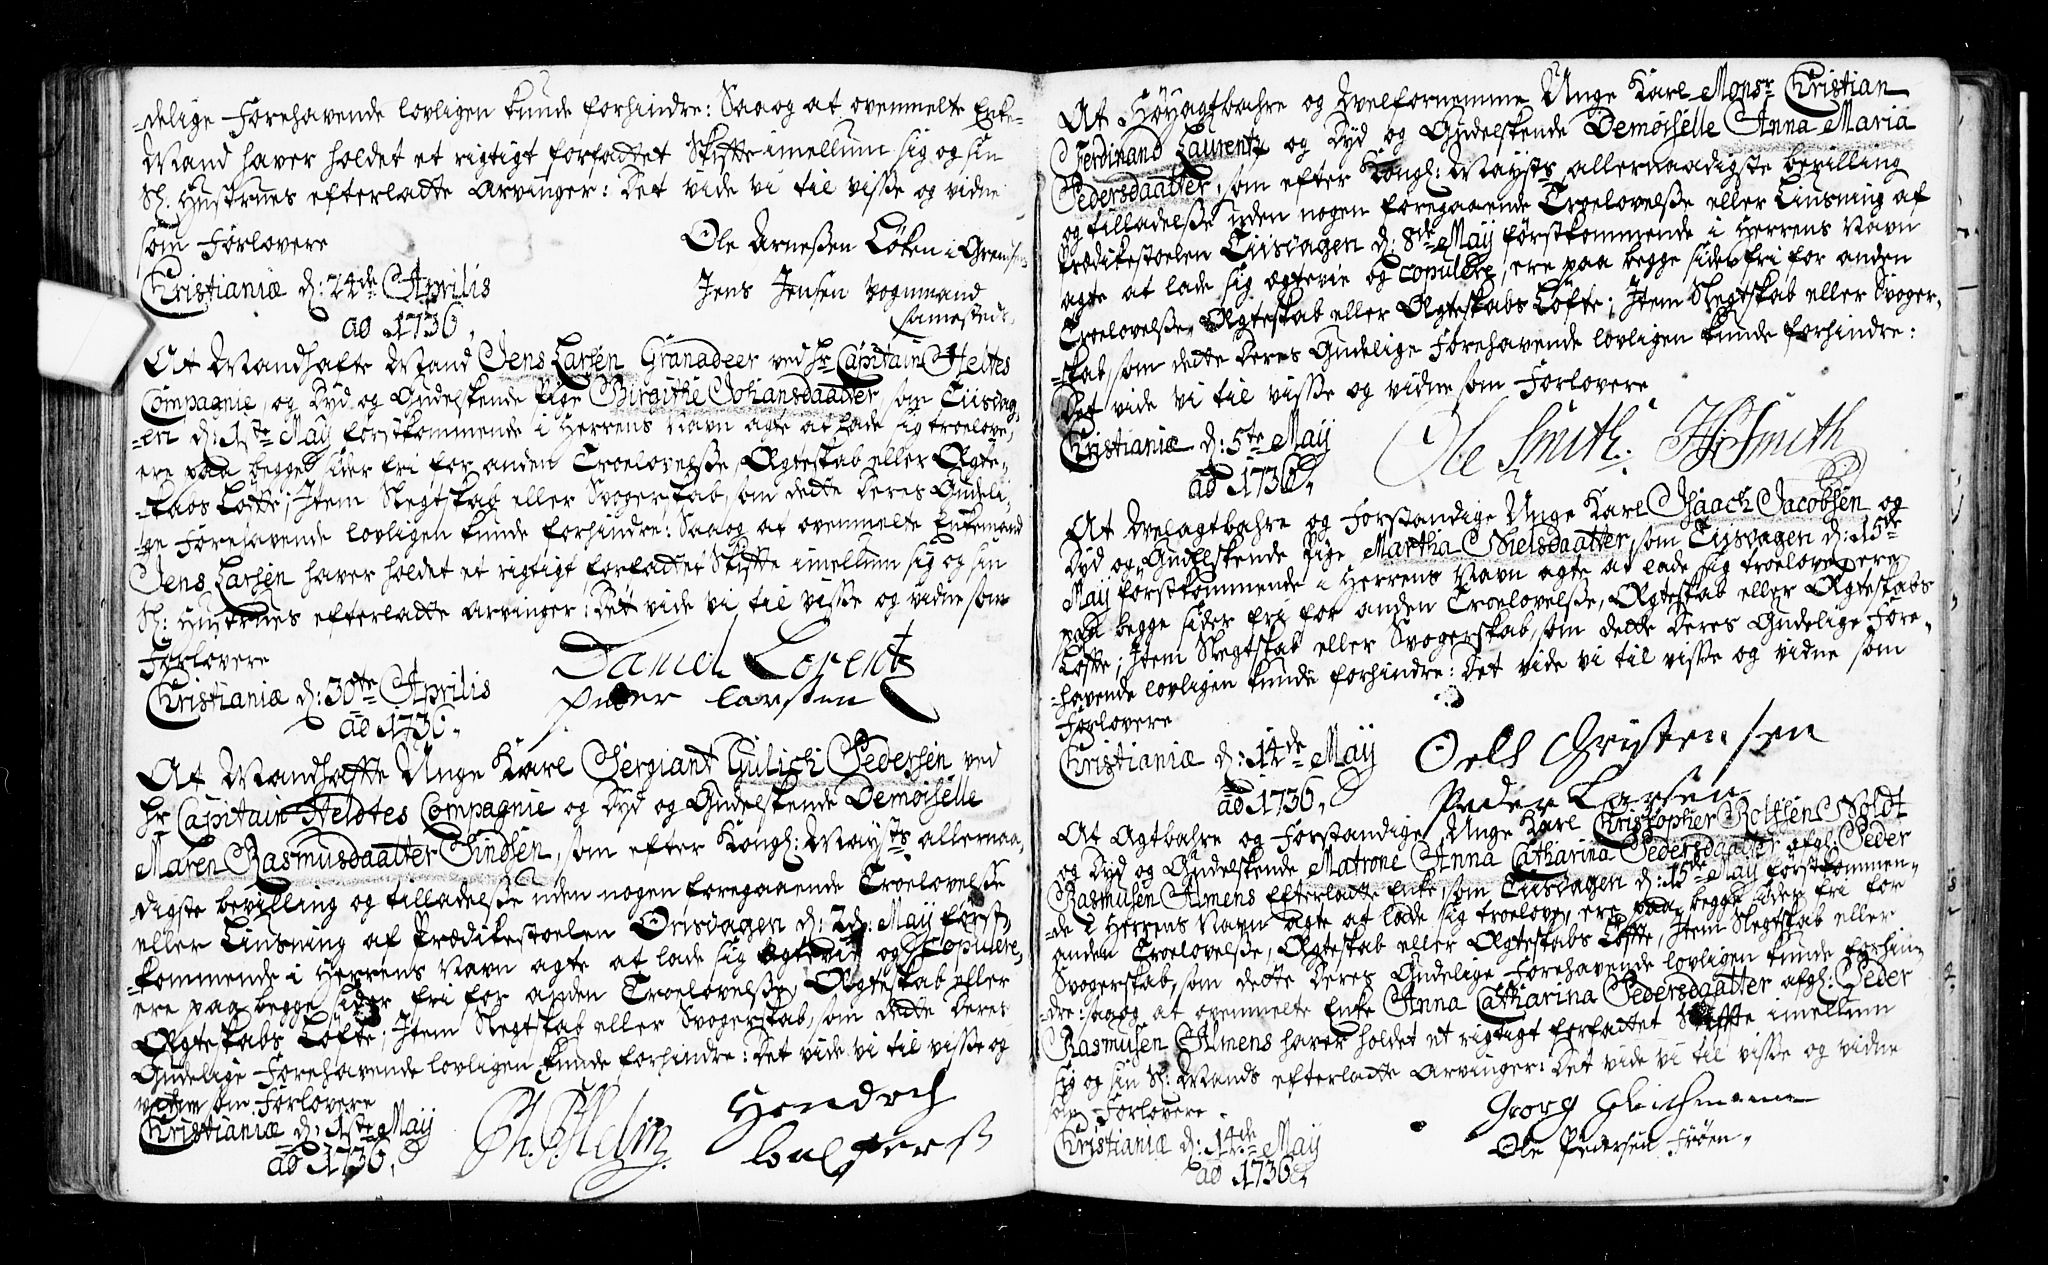 -delige Forehavende lovligen kunde forhindre: Saa og at ovenmelte Enke-
Mand haver holdet et rigtigt forfattet Skifte imellum sig og sin
Sl: Hustrues efterlatte Arvinger: Det vide vi til visse og vidne
som Forlovere
Ole Arnessen Löken i Grensen
Christianiæ d: 24de Aprilis
Jens Jensen Vognmand
ao 1736,
samesteds,
At Mandhafte Mand Jens Larsen Granadeer ved Hr Capitain Heltes
Compagnie, og Dyd og Gudelskende Pige Birgithe Johansdaatter, som Tiisdag-
-en d: 1ste Maij förstkommende i Herrens Navn agte at lade sig troelove,
ere paa begge sider fri for anden Troelovelsse, Ægteskab eller Ægte-
-skabs Löfte; Item Slegtskab eller Svogerskab, som dette Deres Gudeli-
-ge Forehavende lovligen kunde forhindre: Saa og at ovenmelte Enkemand
Jens Larsen haver holdet et rigtigt forfattet Skifte imellum sig og sin
Sl: Hustrues efterlatte Arvinger: Det vide vi til visse og vidne som
Forlovere
Daniel Lorentz
Christianiæ d: 30te Aprilis
Peder Larssen
ao 1736,
At Mandhaffte Unge Karl Sergiant Gulich Pedersen ved
Hr Capitain Heldtes Compagnie og Dyd og Gudelskende Demoiselle
Maren Rasmusdaatter Sindsen, som efter Kongl: Mayts allernaa-
digste bevilling og tilladelsse uden nogen foregaaende Troelovelsse
eller Liusning af Prædikestoelen Onsdagen d: 2d: Maij först-
-kommende i Herrens Navn agte at lade sig ægtevie og copulere,
ere paa begge sider fri for anden Troelovelsse, Ægteskab eller
Ægteskabs Löfte; Item Slegtskab eller Svogerskab, som dette Deres
Gudelige Forehavende lovligen kunde forhindre: Det vide vi til visse og
vidne som Forlovere
Christianiæ d: 1ste Maij
Hendrch
ao 1736,
At Höyagtbahre og Velfornemme Unge Karl Monsr Christian
Ferdinand Laurentz og Dyd og Gudelskende Demoiselle Anna Maria
Pedersdaatter, som efter Kongl: Mayts allernaadigste bevilling
og tilladelsse uden nogen foregaaende Troelovelsse eller Liusning af
Prædikestoelen Tiisdagen d: 8de Maij förstkommende i Herrens Navn
agte at lade sig ægtevie og copulere, ere paa begge sider fri for anden
Troelovelsse, Ægteskab eller Ægteskabs Löfte; Item Slegtskab eller Svoger-
-skab, som dette Deres Gudelige Forehavende lovligen kunde forhindre:
Det vide vi til visse og vidne som Forlovere
Christianiæ d: 5te Maij
Ole Smith. HJSmith
ao 1736,
At Velagtbahre og Forstandige Unge Karl Isaach Jacobsen og
Dyd og Gudelskende Pige Martha Nielsdaatter, som Tiisdagen d: 15de
Maij förstkommende i Herrens Navn agte at lade sig troelove, ere
paa begge sider fri for anden Troelovelsse, Ægteskab eller Ægteskabs
Löfte; Item Slegtskab eller Svogerskab, som dette Deres Gudelige Fore-
-havende lovligen kunde forhindre: Det vide vi til visse og vidne som
Forlovere
Christianiæ d: 14de Maij
Oelle Christensen
ao 1736,
Peder Larsen
At Agtbahre og Forstandige Unge Karl Christopher Rolfsen Noldt
og Dyd og Gudelskende Matrone Anna Catharina Pedersdaatter, afgl: Peder
Rasmusen Almens efterlatte Enke, som Tiisdagen d: 15de Maij förstkommen-
-de i Herrens Navn agte at lade sig troelove, ere paa begge sider fri for
anden Troelovelsse, Ægteskab eller Ægteskabs Löfte, Item Slegtskab eller
Svogerskab, som dette Deres Gudelige Forehavende lovligen kunde forhin-
-dre: saa og at ovenmelte Enke Anna Catharina Pedersdaatter afgl: Peder
Rasmusen Almens haver holdet et rigtigt forfattet Skiffte imellum
sig og sin Sl: Mands efterlatte Arvinger: Det vide vi til visse og vidne
som Forlovere
Christianiæ d: 14de Maij
Georg
ao 1736,
Ole Pedersen Fröen,